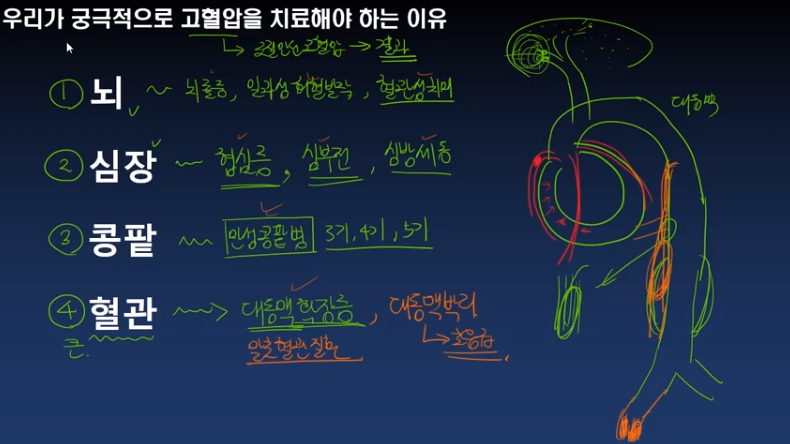 우리가 궁극적으로 고혈압을 치료해야 하는 이유
↳ 조절안된 고혈압 → 결과
① 뇌 ~ 뇌졸중, 일과성 허혈발작, 혈관성치매
대동맥
② 심장 ~ 협심증, 심부전, 심방세동
③ 콩팥 ~ 만성콩팥병 3기, 4기, 5기
④ 혈관 → 대동맥 확장증, 대동맥박리
큰. 말초혈관질환 ↳ 초응급.